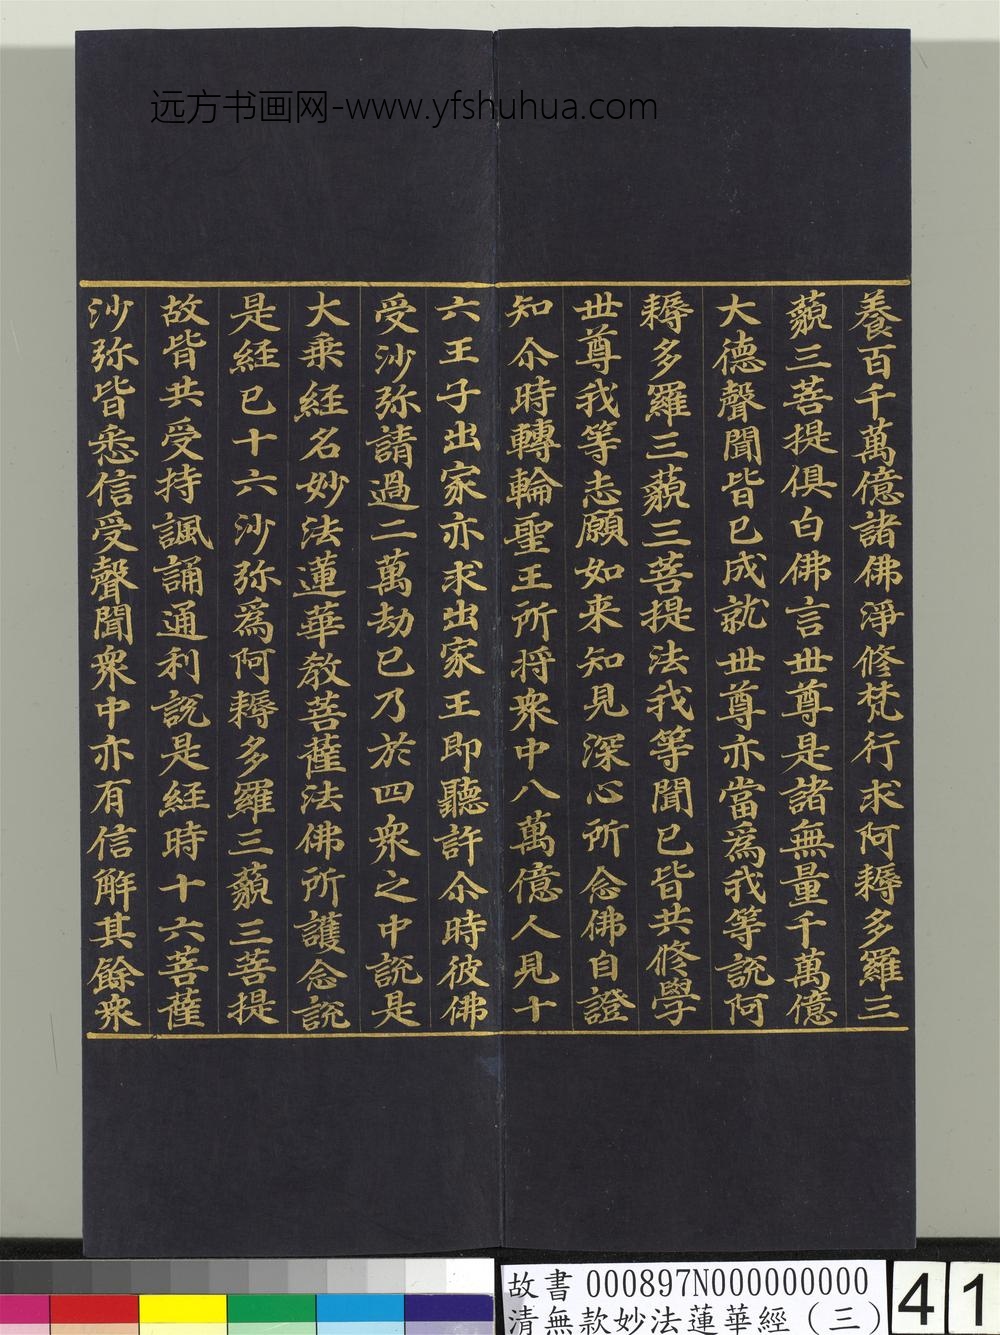 远方书画网-www.yfshuhua.com
養百千萬億諸佛淨修梵行求阿耨多羅三
藐三菩提俱白佛言世尊是諸無量千萬億
大德聲聞皆已成就世尊亦當為我等說阿
耨多羅三藐三菩提法我等聞已皆共修學
世尊我等志願如來知見深心所念佛自證
知尒時轉輪聖王所將衆中八萬億人見十
六王子出家亦求出家王即聽許尒時彼佛
受沙弥請過二萬劫已乃於四衆之中說是
大乘經名妙法蓮華教菩薩法佛所護念說
是經已十六沙弥為阿耨多羅三藐三菩提
故皆共受持諷誦通利說是經時十六菩薩
沙弥皆悉信受聲聞衆中亦有信解其餘衆
故書 000897N000000000
清無款妙法蓮華經(三)
41